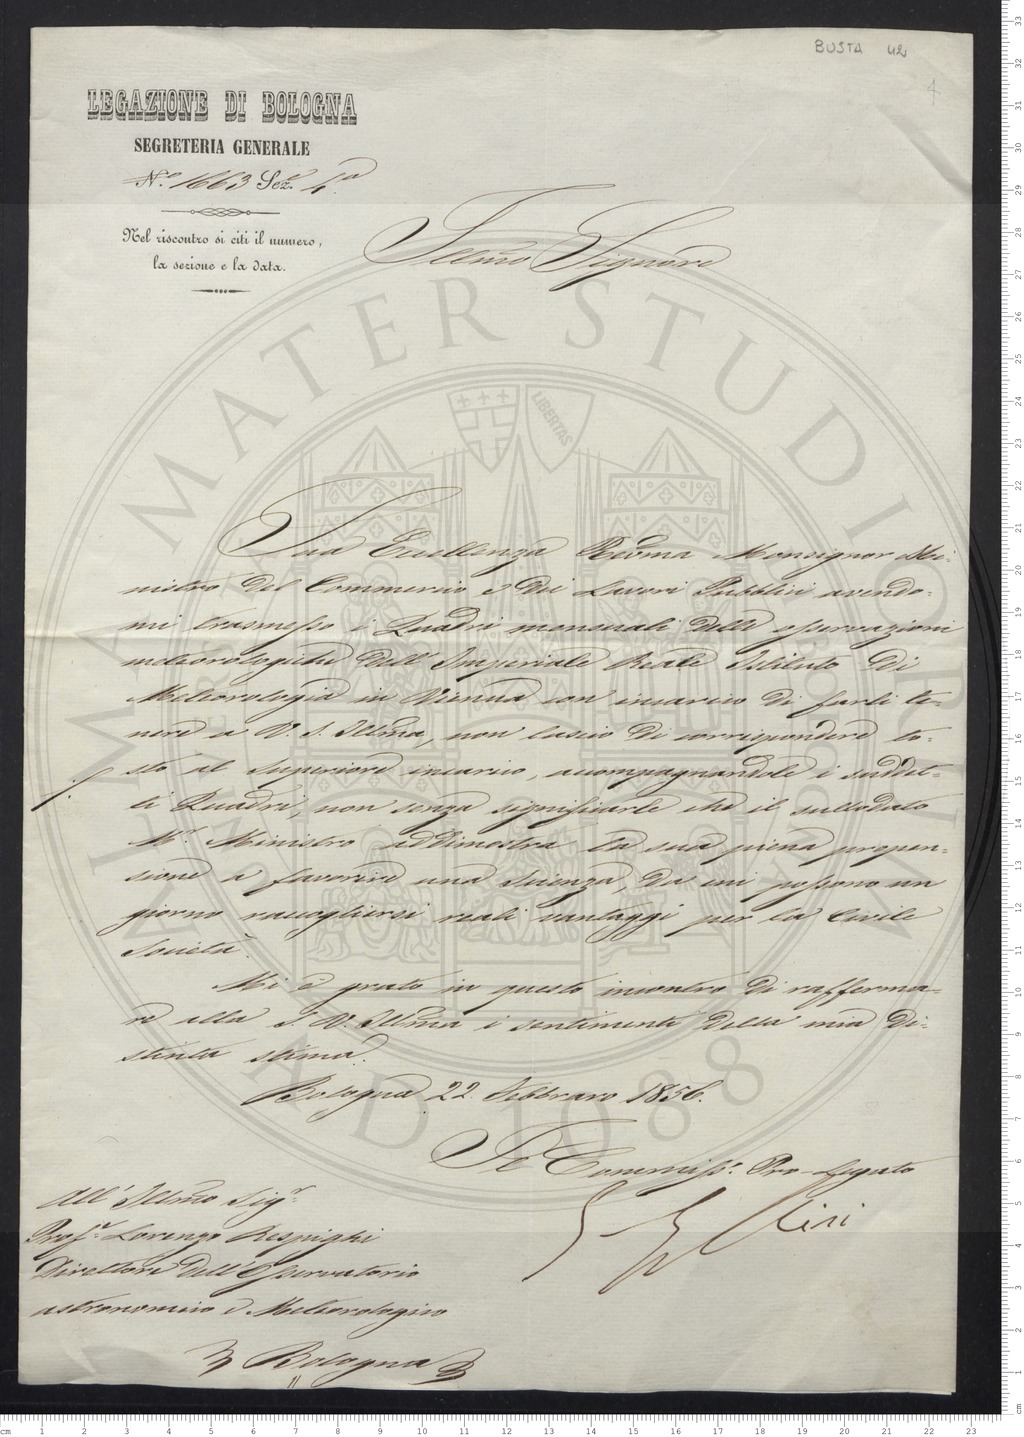 BUSTA 42
4
LEGAZIONE DI BOLOGNA
SEGRETERIA GENERALE
N.º 1663 Sez.e 4.a
Nel riscontro si citi il numero,
la sezione e la data.
Illmo Signore
Sua Eccellenza Revma Monsignor Mi-
nistro del Commercio e dei Lavori Pubblici avendo-
mi trasmesso i Quadri mensuali delle osservazioni
meteorologiche dell'Imperiale Reale Istituto di
Meteorologia in Vienna con incarico di farli te-
nere a V. S. Illma, non lascio di corrispondere to-
sto al Superiore incarico, accompagnandole i suddet-
ti Quadri, non senza significarle che il sullodato
Mr. Ministro addimostra la sua piena propen-
sione a favorire una Scienza, da cui possono un
giorno raccogliersi reali vantaggi per la Civile
Società.
Mi è grato in questo incontro di rafferma-
re alla S. V. Illma i sentimenti della mia di-
stinta stima.
Bologna 22. Febbraro 1856.
Il Commiss.o Pro-Legato
All'Illmo Sigr.
Prof.e Lorenzo Respighi
Direttore dell'Osservatorio
astronomico e Meteorologico
Bologna
ALMA MATER STUDIORUM
LIBERTAS
AD 1088